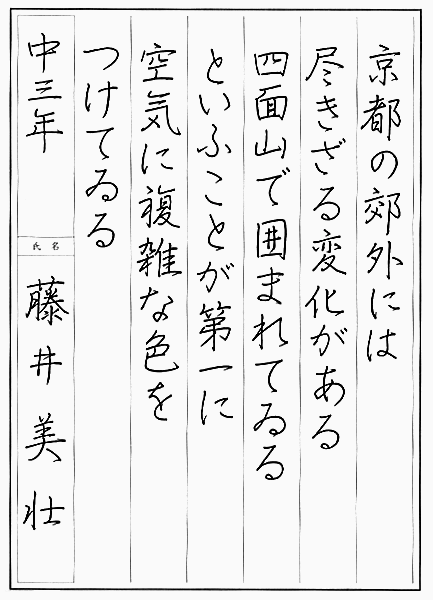 京都の郊外には
尽きざる変化がある
四面山で囲まれてゐる
といふことが第一に
空気に複雑な色を
つけてゐる
中三年
氏名
藤井美壮